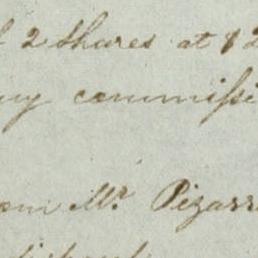 2 Shares at $ 2
my commiſsi
om Mr. Pizarr